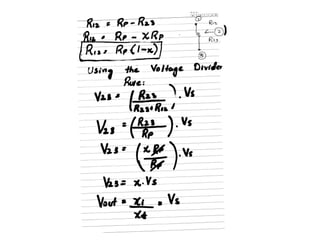 R12 = RP - R23
R12 = RP - xRP
R12 = RP (1-x)
R12
2
R23
3
Using the Voltage Divider
Rule:
V23 = (R23 / R23+R12) . Vs
V23 = (R23 / RP) . Vs
V23 = (x RP / RP) . Vs
V23 = x . Vs
Vout = x1 / xt = Vs